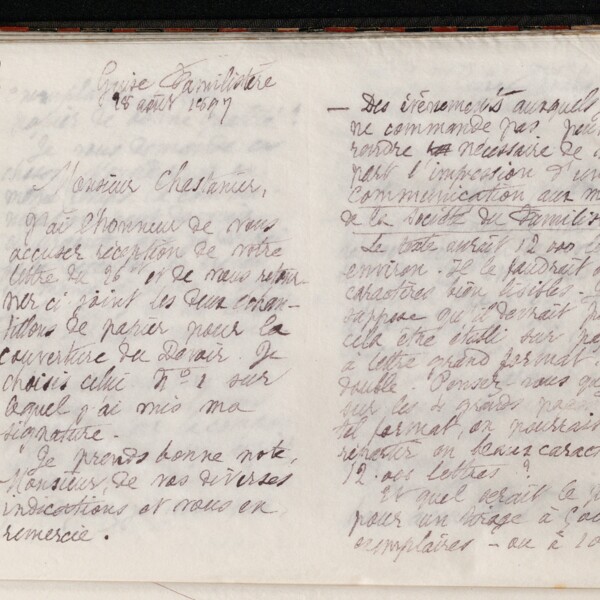 Guise Familistère
28 août 1897
Monsieur Chastanier,
J'ai l'honneur de vous
accuser réception de votre
lettre du 26 et de vous retour-
ner ci joint les deux échan-
tillons de papier pour la
couverture du Devoir. Je
choisis celui N° 1 sur
lequel j'ai mis ma
signature.
Je prends bonne note,
Monsieur, de vos diverses
indications et vous en
remercie.
— Des événements auxquels
ne commande pas peu
rendre nécessaire de
part l'impression d'u
communication aux m
de la Société du Familis
Le texte aurait 12 000
environ. Il le faudrait
caractères bien lisibles.
suppose qu'il devrait p
cela être établi sur pa
à lettre grand format
double. Pensez-vous qu
sur les 4 grands pa
tel format, on pourrait
répartir en beaux carac
12.000 lettres ?
Et quel serait le
pour un tirage à
exemplaires – ou à 10